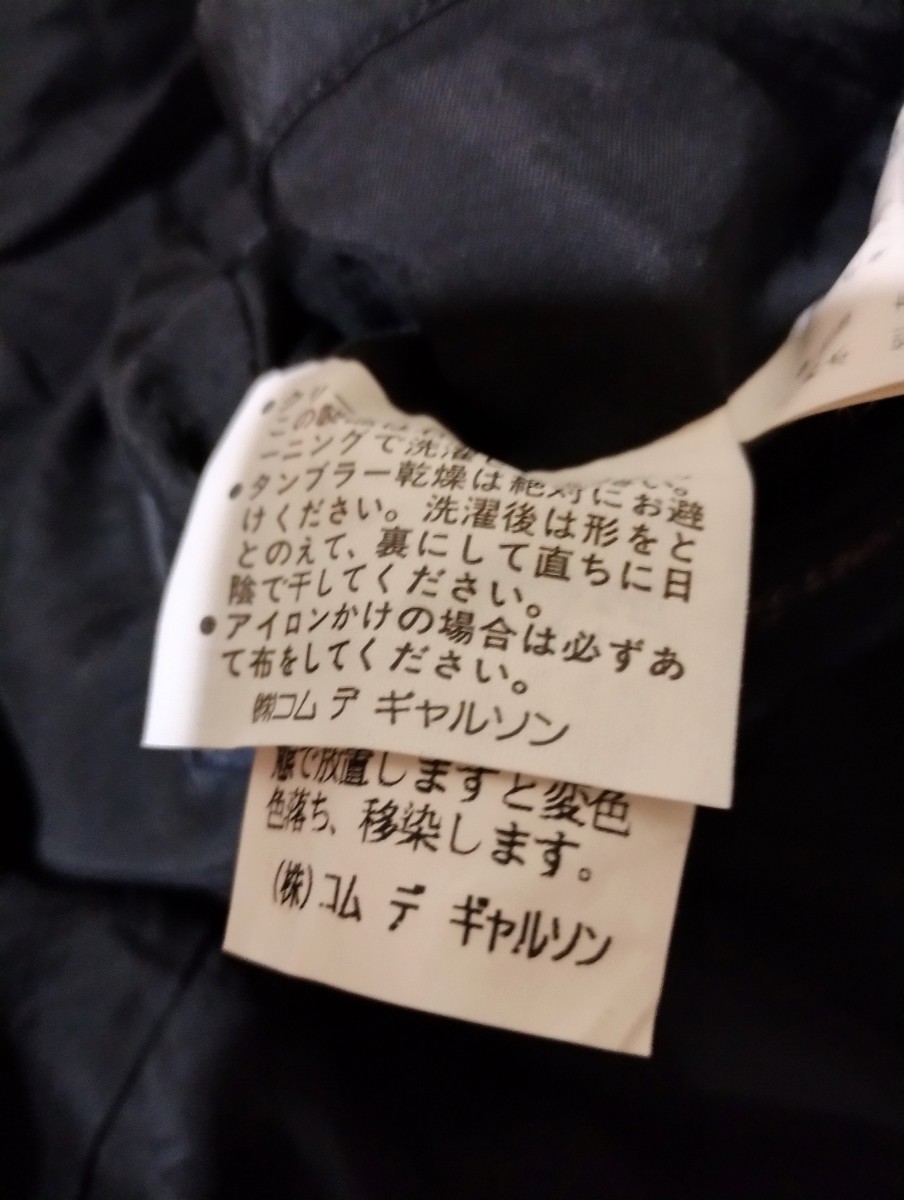 ●クリ
この
ニングで洗濯
●タンブラー乾燥は絶対にお避
けください。洗濯後は形をと
とのえて、裏にして直ちに日
陰で干してください。
●アイロンかけの場合は必ずあ
て布をしてください。
㈱コム デ ギャルソン
態で放置しますと変色
色落ち、移染します。
(株)コム デ ギャルソン